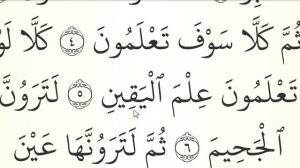 ثُمَّ كَلَّا سَوْفَ تَعْلَمُونَ ٤ كَلَّا لَوْ
تَعْلَمُونَ عِلْمَ الْيَقِينِ ٥ لَتَرَوُنَّ
الْجَحِيمَ ٦ ثُمَّ لَتَرَوُنَّهَا عَيْنَ